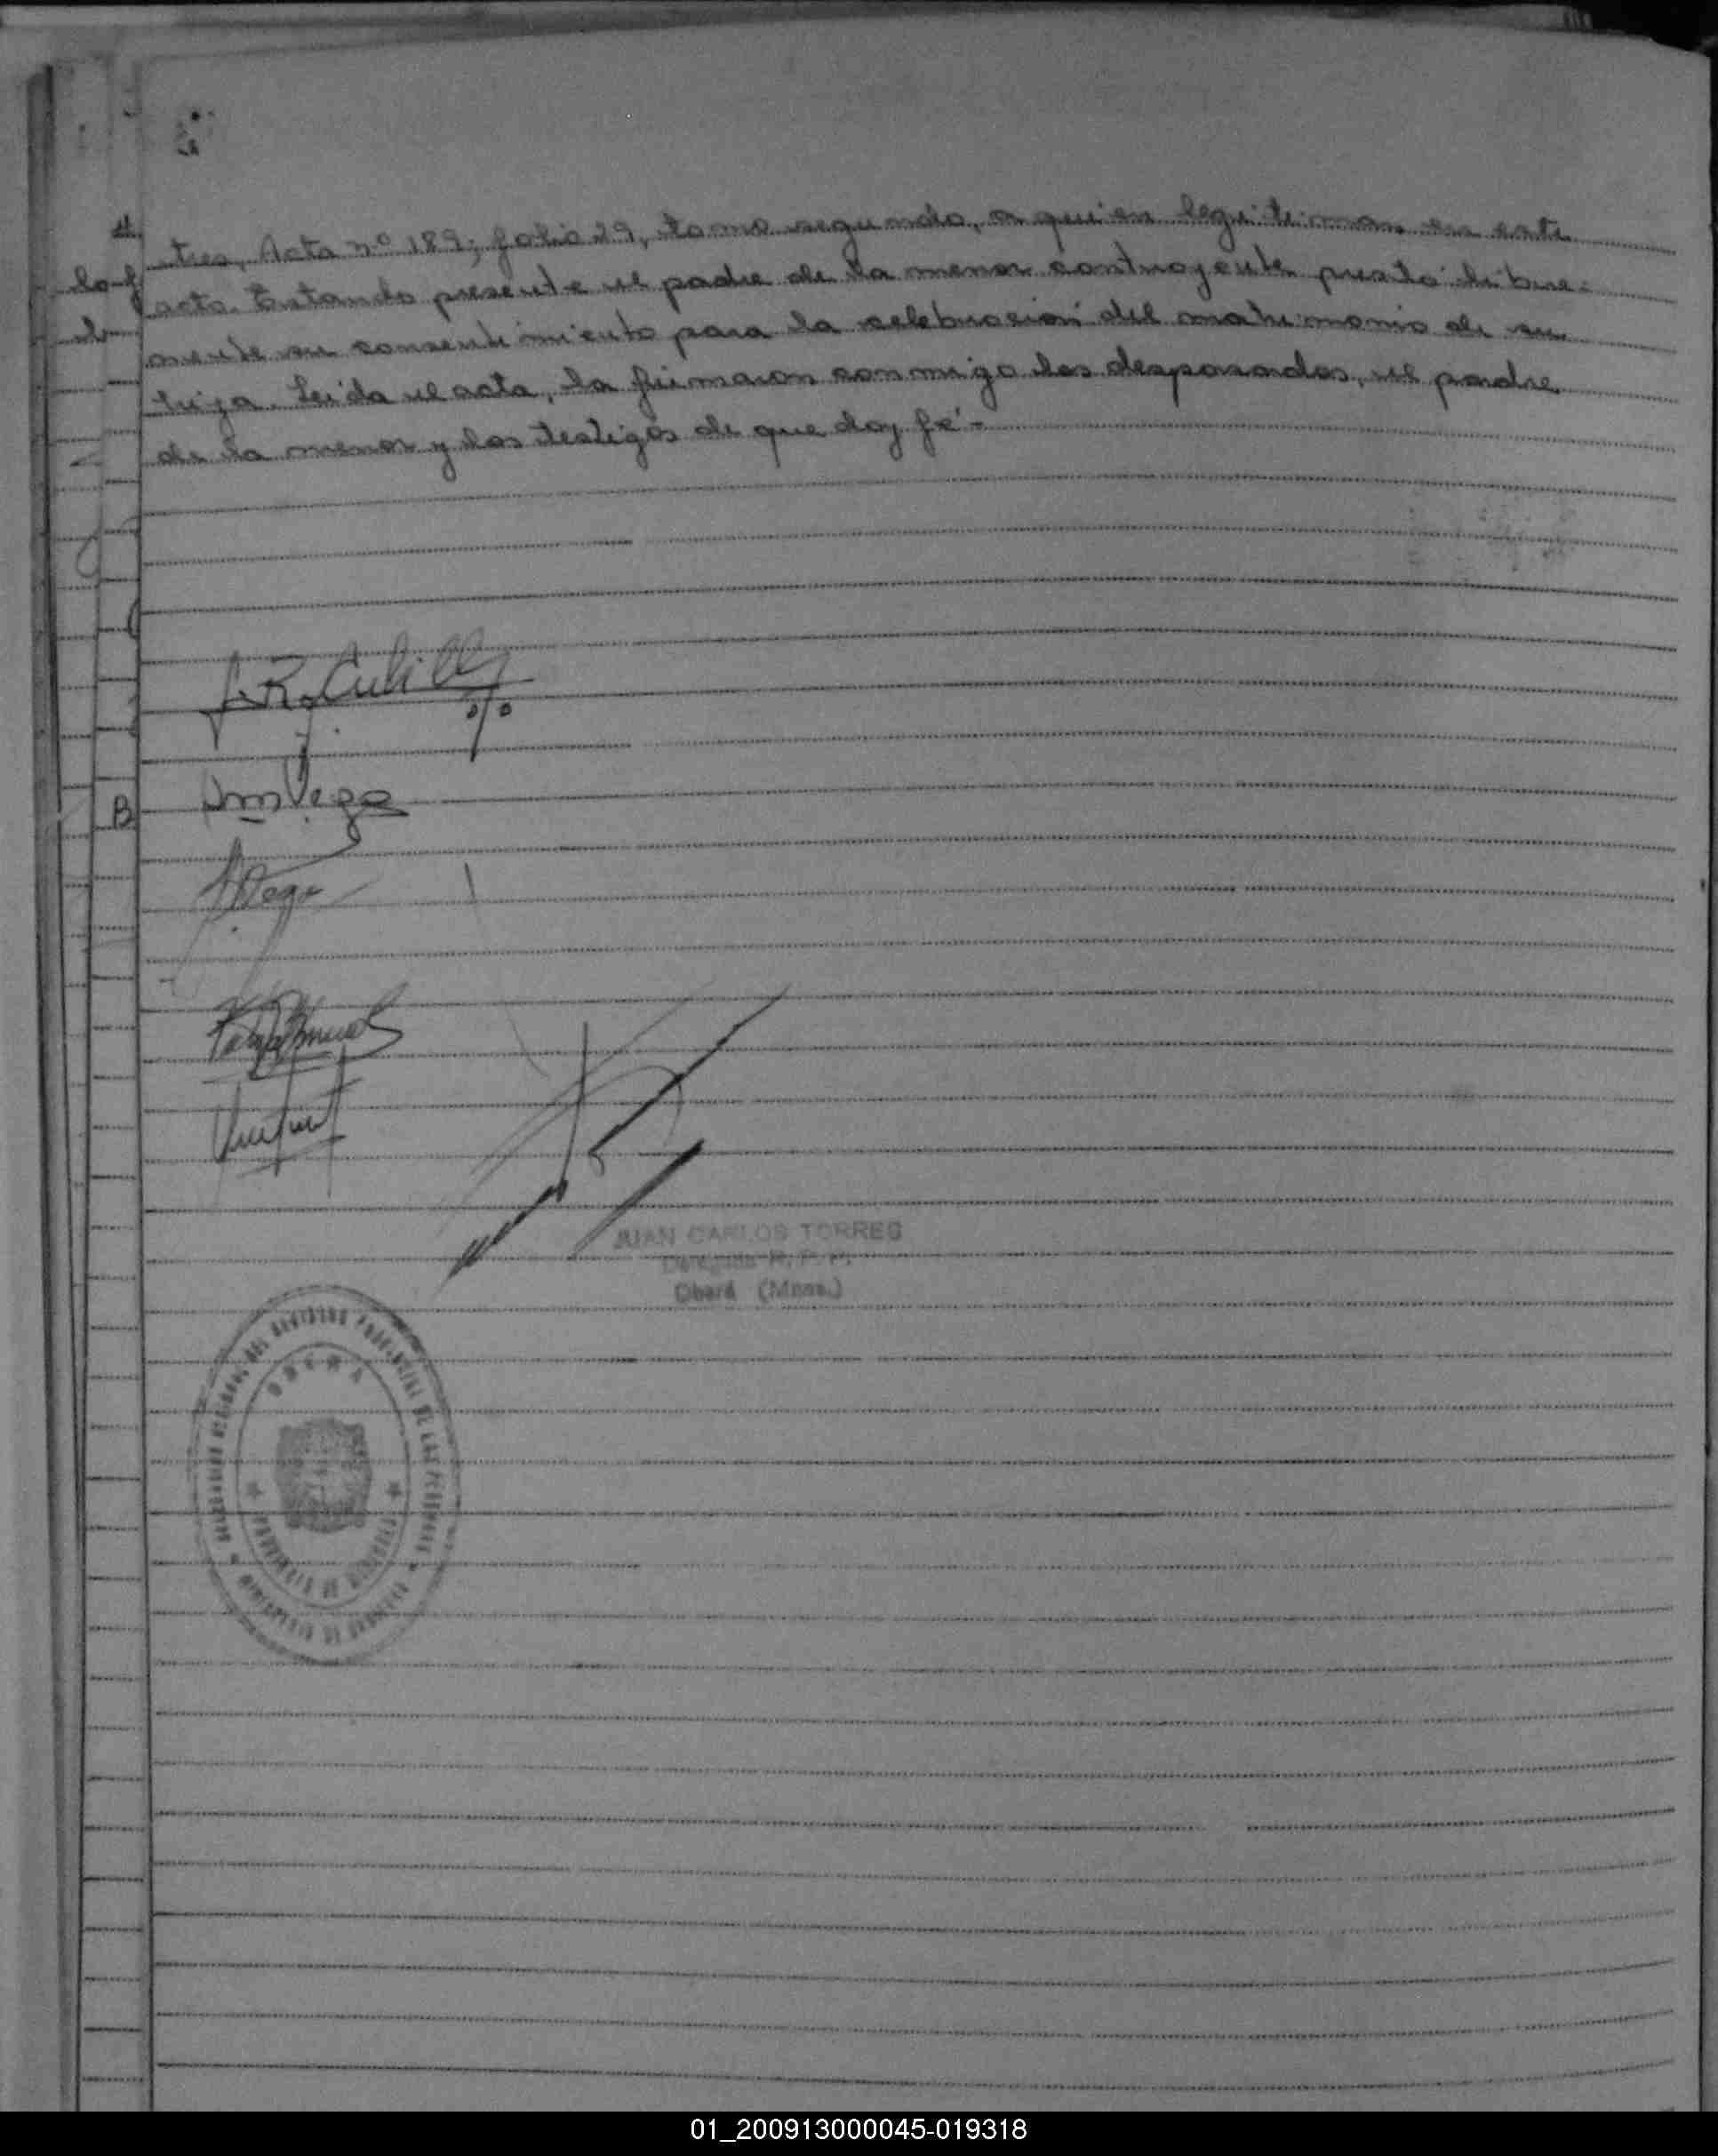 tres, Acta nº 189; folio 29, tomo segundo, a quien legitiman en este
acto. Estando presente el padre de la menor contrayente prestó libre-
mente su consentimiento para la celebración del matrimonio de su
hija. Leida el acta, la firmaron conmigo los desposados, el padre
de la menor y los testigos de que doy fé-
Vega
B
JUAN CARLOS TORRES
Oberá (Mnes.)
OBERA
PROVINCIA DE MISIONES
01_200913000045-019318